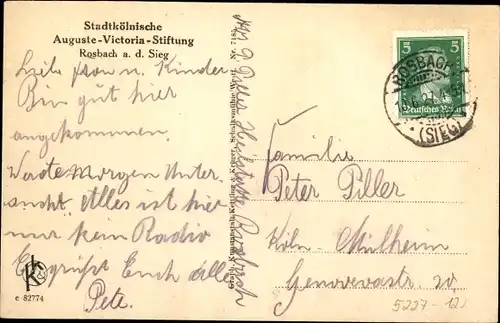 Stadtkölnische
Auguste-Victoria-Stiftung
Rosbach a. d. Sieg
5 5
Deutsches Reich
ROSBACH
(SIEG)
Liebe Frau u. Kinder
Bin gut hier
angekommen.
Werde Morgen Unter-
sucht Alles ist hier
nur kein Radio
Es grüßt Euch alle
Pete.
e 82774
Familie
Peter Piller
Köln-Mülheim
Genovevastr. 20.
5227-12
Heilstätte Rosbach
Nr. 7183